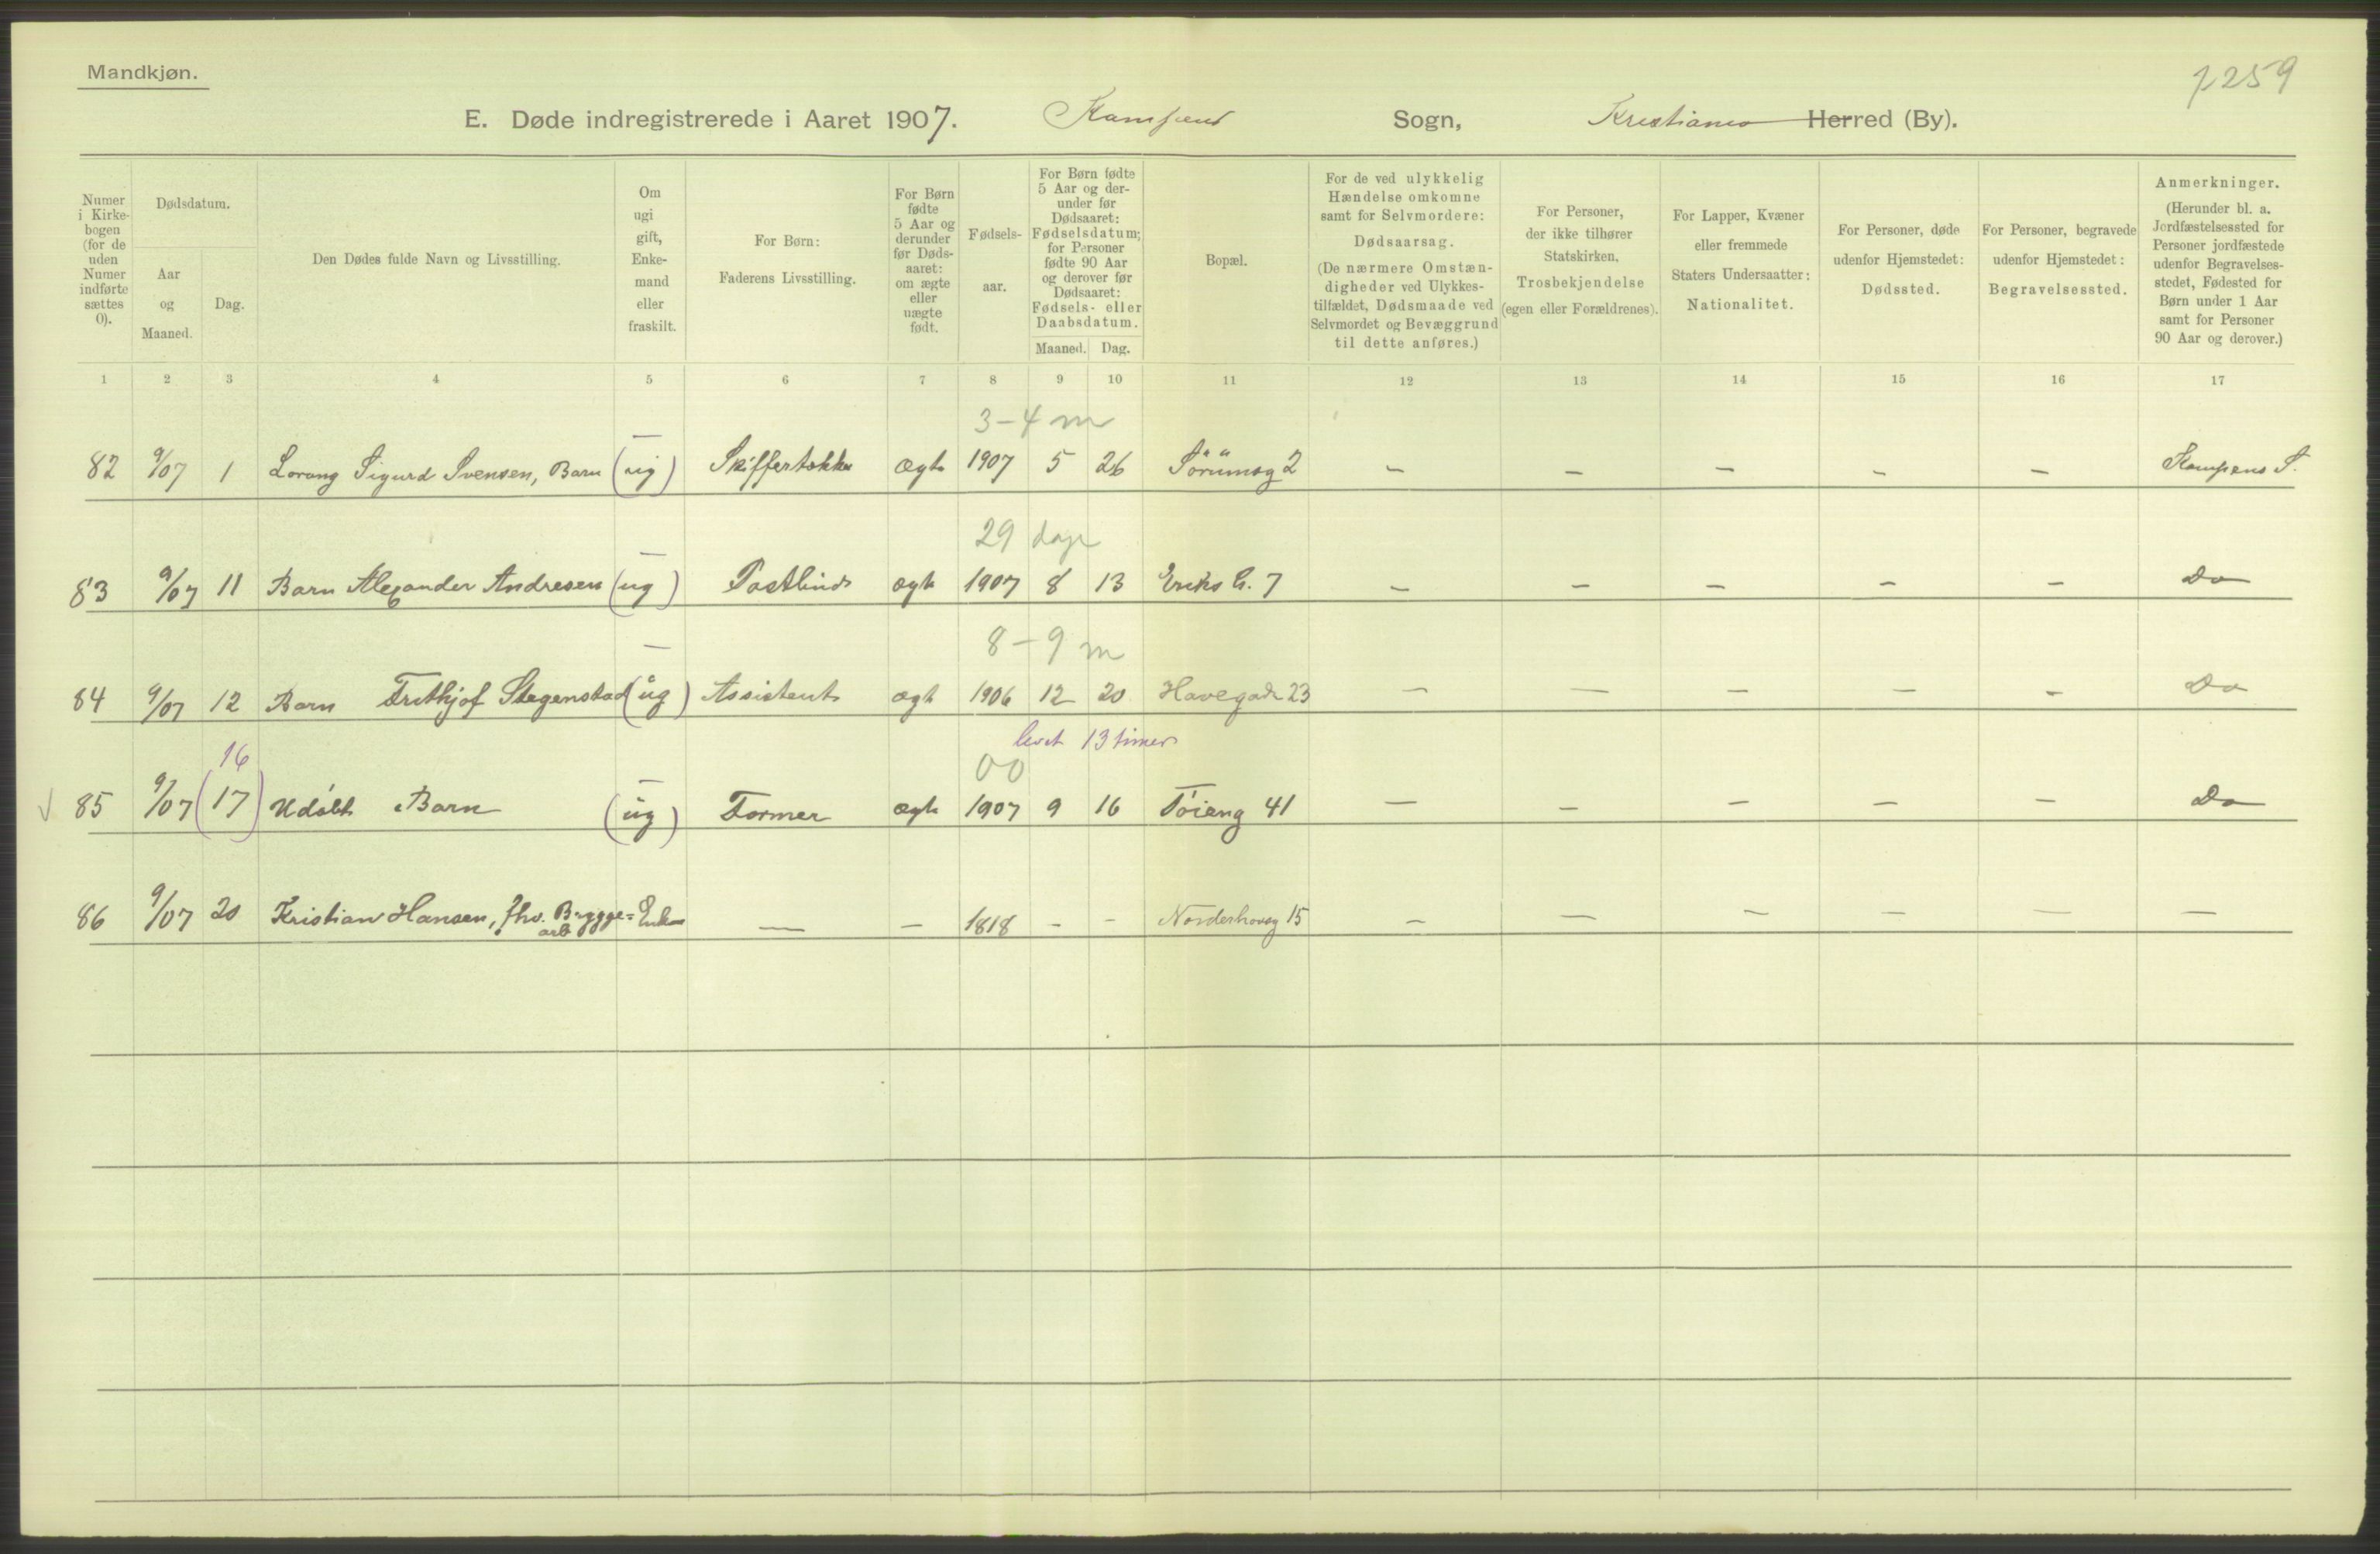 Mandkjøn.
7259
E. Døde indregistrerede i Aaret 1907. Kampens Sogn, Kristiania Herred (By).
Numer i Kirkebogen (for de uden Numer indførte sættes 0).
Dødsdatum.
Aar og Maaned.
Dag.
Den Dødes fulde Navn og Livsstilling.
Om ugift, gift, Enkemand eller fraskilt.
For Børn: Faderens Livsstilling.
For Børn fødte 5 Aar og derunder før Dødsaaret: om ægte eller uægte født.
Fødselsaar.
For Børn fødte 5 Aar og derunder før Dødsaaret: Fødselsdatum; for Personer fødte 90 Aar og derover før Dødsaaret: Fødsels- eller Daabsdatum.
Maaned. Dag.
Bopæl.
For de ved ulykkelig Hændelse omkomne samt for Selvmordere: Dødsaarsag. (De nærmere Omstændigheder ved Ulykkestilfældet, Dødsmaade ved Selvmordet og Bevæggrund til dette anføres.)
For Personer, der ikke tilhører Statskirken, Trosbekjendelse (egen eller Forældrenes).
For Lapper, Kvæner eller fremmede Staters Undersaatter: Nationalitet.
For Personer, døde udenfor Hjemstedet: Dødssted.
For Personer, begravede udenfor Hjemstedet: Begravelsessted.
Anmerkninger. (Herunder bl. a. Jordfæstelsessted for Personer jordfæstede udenfor Begravelsesstedet, Fødested for Børn under 1 Aar samt for Personer 90 Aar og derover.)
1 2 3 4 5 6 7 8 9 10 11 12 13 14 15 16 17
3-4 m
82 9/07 1 Lorang Sigurd Svensen, Barn (ug) Skiffertækker ægte 1907 5 26 Sörumsg 2 – – – – – Kampens S.
29 dage
83 9/07 11 Barn Alexander Andresen (ug) Postbud ægte 1907 8 13 Eriks G. 7 – – – – – Do
8-9 m
84 9/07 12 Barn Frithjof Stegenstad (ug) Assistent ægte 1906 12 20 Havegade 23 – – – – – Do
levet 13 timer
16 00
85 9/07 (17) Udøbt Barn (ug) Former ægte 1907 9 16 Töieng 41 – – – – – Do
86 9/07 20 Kristian Hansen, fhv. Bryggearb Enkem — – 1818 – – Norderhovsg 15 – – – – – –